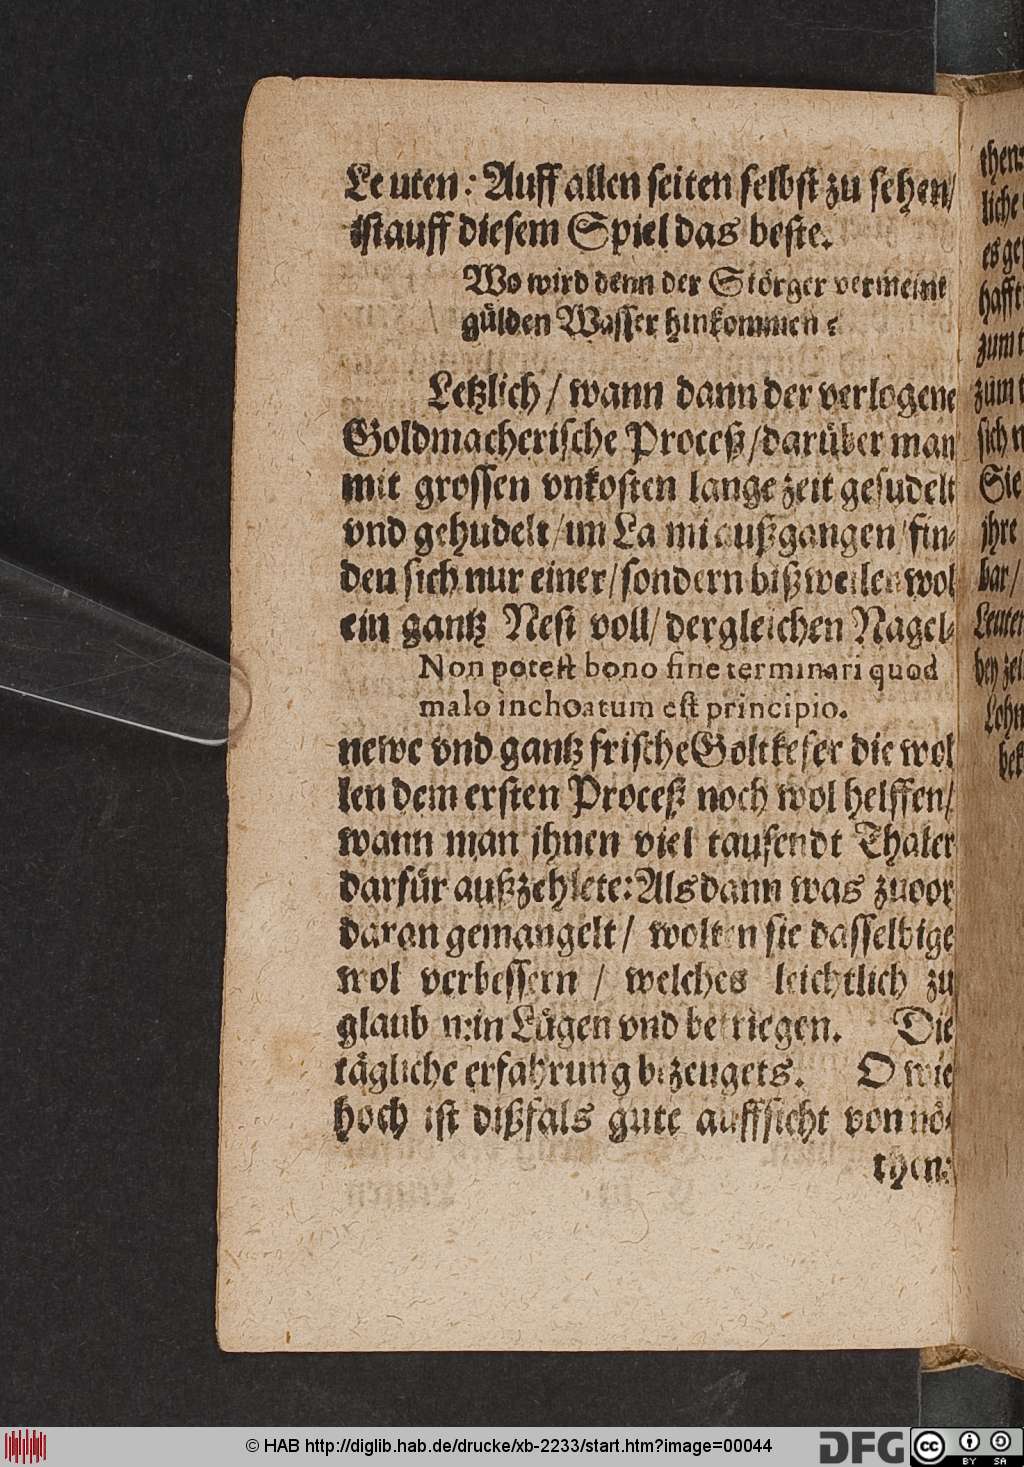 Leuten: Auff allen seiten selbst zu sehen/
ist auff diesem Spiel das beste.
Wo wird denn der Störger vermeint
gülden Wasser hinkommen?
Letzlich / wann dann der verlogene
Goldmacherische Proceß/darüber man
mit grossen vnkosten lange zeit gesudelt
vnd gehudelt/im La mi außgangen/fin-
den sich nur einer/sondern bißweilen wol
ein gantz Nest voll/dergleichen Nagel-
Non potest bono fine terminari quod
malo inchoatum est principio.
newe vnd gantz frische Goltkefer die wol
len dem ersten Proceß noch wol helffen/
wann man jhnen viel tausendt Thaler
darfür außzehlete: Als dann was zuvor
daran gemangelt/ wolten sie dasselbige
wol verbessern / welches leichtlich zu
glaub n: in Lügen vnd betriegen. Die
tägliche erfahrung bezeugets. O wie
hoch ist dißfals gute auffsicht von nö-
then:
then:
liche
es
hafft
zum
zum
sich
Sie
jhre
bar/
Leuten
bey
Lohn
bek
© HAB http://diglib.hab.de/drucke/xb-2233/start.htm?image=00044
DFG
cc
BY SA